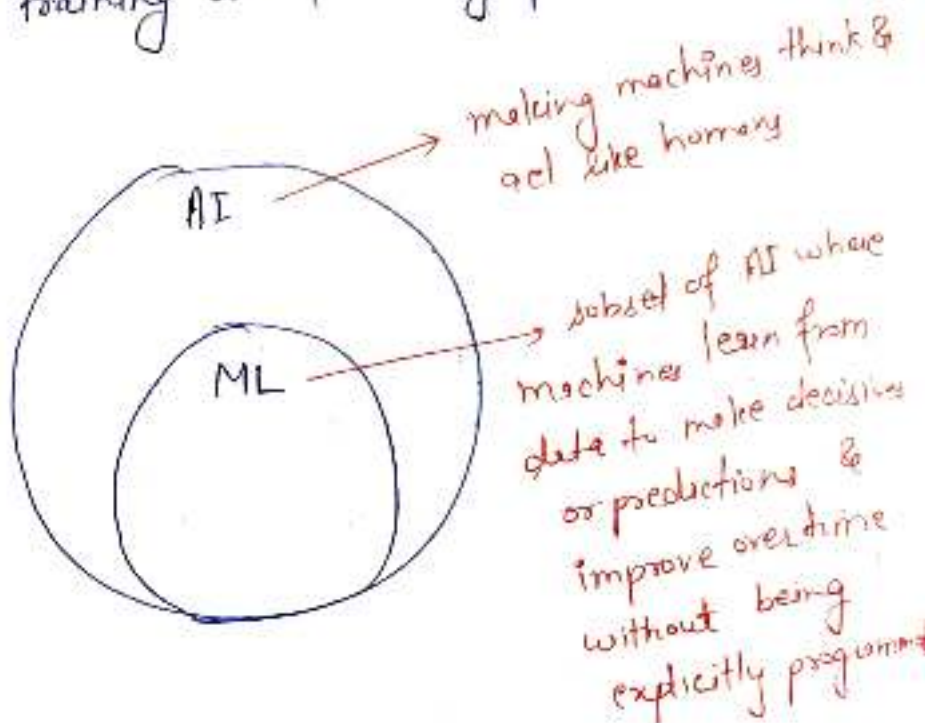 training
AI
making machines think &
act like humans
ML
subset of AI where
machines learn from
data to make decisions
or predictions &
improve over time
without being
explicitly programmed